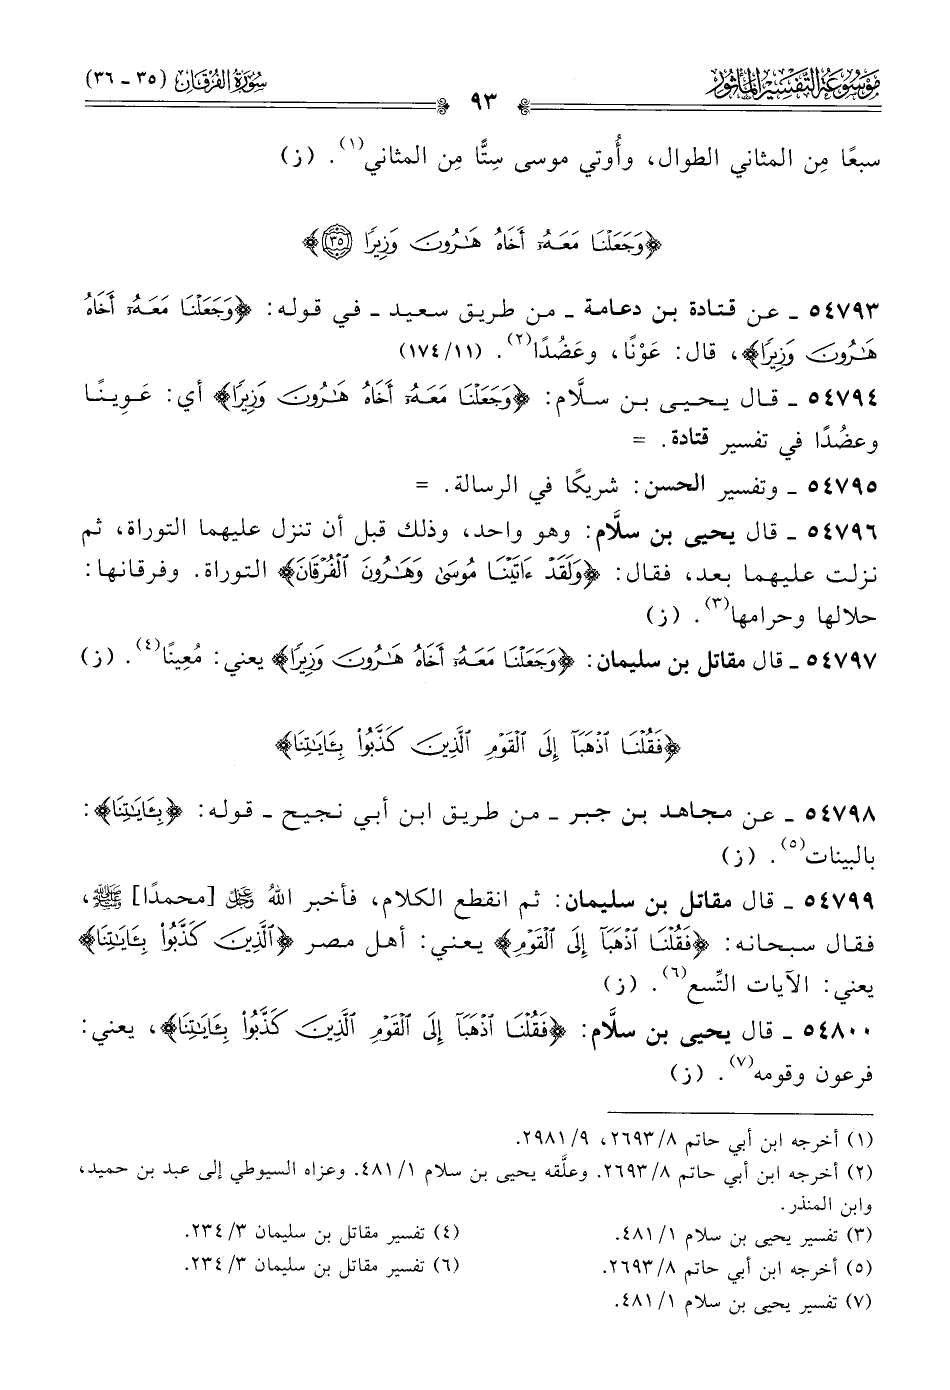 موسوعة التفسير المأثور
سورة الفرقان (٣٥ - ٣٦)
٩٣
سبعًا مِن المثاني الطوال، وأُوتي موسى سِتًّا مِن المثاني(١). (ز)
﴿وَجَعَلْنَا مَعَهُۥٓ أَخَاهُ هَٰرُونَ وَزِيرًا ٣٥﴾
٥٤٧٩٣ ـ عن قتادة بن دعامة ـ من طريق سعيد ـ في قوله: ﴿وَجَعَلْنَا مَعَهُۥٓ أَخَاهُ
هَٰرُونَ وَزِيرًا﴾، قال: عَوْنًا، وعَضُدًا(٢). (١١/ ١٧٤)
٥٤٧٩٤ ـ قال يحيى بن سلَّام: ﴿وَجَعَلْنَا مَعَهُۥٓ أَخَاهُ هَٰرُونَ وَزِيرًا﴾ أي: عَوِينًا
وعضُدًا في تفسير قتادة. =
٥٤٧٩٥ ـ وتفسير الحسن: شريكًا في الرسالة. =
٥٤٧٩٦ ـ قال يحيى بن سلَّام: وهو واحد، وذلك قبل أن تنزل عليهما التوراة، ثم
نزلت عليهما بعد، فقال: ﴿وَلَقَدْ ءَاتَيْنَا مُوسَىٰ وَهَٰرُونَ ٱلْفُرْقَانَ﴾ التوراة. وفرقانها:
حلالها وحرامها(٣). (ز)
٥٤٧٩٧ ـ قال مقاتل بن سليمان: ﴿وَجَعَلْنَا مَعَهُۥٓ أَخَاهُ هَٰرُونَ وَزِيرًا﴾ يعني: مُعِينًا(٤). (ز)
﴿فَقُلْنَا ٱذْهَبَآ إِلَى ٱلْقَوْمِ ٱلَّذِينَ كَذَّبُوا۟ بِـَٔايَٰتِنَا﴾
٥٤٧٩٨ ـ عن مجاهد بن جبر ـ من طريق ابن أبي نجيح ـ قوله: ﴿بِـَٔايَٰتِنَا﴾:
بالبينات(٥). (ز)
٥٤٧٩٩ ـ قال مقاتل بن سليمان: ثم انقطع الكلام، فأخبر اللهُ ﷿ [محمدًا] ﷺ،
فقال سبحانه: ﴿فَقُلْنَا ٱذْهَبَآ إِلَى ٱلْقَوْمِ﴾ يعني: أهل مصر ﴿ٱلَّذِينَ كَذَّبُوا۟ بِـَٔايَٰتِنَا﴾
يعني: الآيات التِّسع(٦). (ز)
٥٤٨٠٠ ـ قال يحيى بن سلَّام: ﴿فَقُلْنَا ٱذْهَبَآ إِلَى ٱلْقَوْمِ ٱلَّذِينَ كَذَّبُوا۟ بِـَٔايَٰتِنَا﴾، يعني:
فرعون وقومه(٧). (ز)
(١) أخرجه ابن أبي حاتم ٨/ ٢٦٩٣، ٩/ ٢٩٨١.
(٢) أخرجه ابن أبي حاتم ٨/ ٢٦٩٣. وعلَّقه يحيى بن سلام ١/ ٤٨١. وعزاه السيوطي إلى عبد بن حميد،
وابن المنذر.
(٣) تفسير يحيى بن سلام ١/ ٤٨١.
(٤) تفسير مقاتل بن سليمان ٣/ ٢٣٤.
(٥) أخرجه ابن أبي حاتم ٨/ ٢٦٩٣.
(٦) تفسير مقاتل بن سليمان ٣/ ٢٣٤.
(٧) تفسير يحيى بن سلام ١/ ٤٨١.